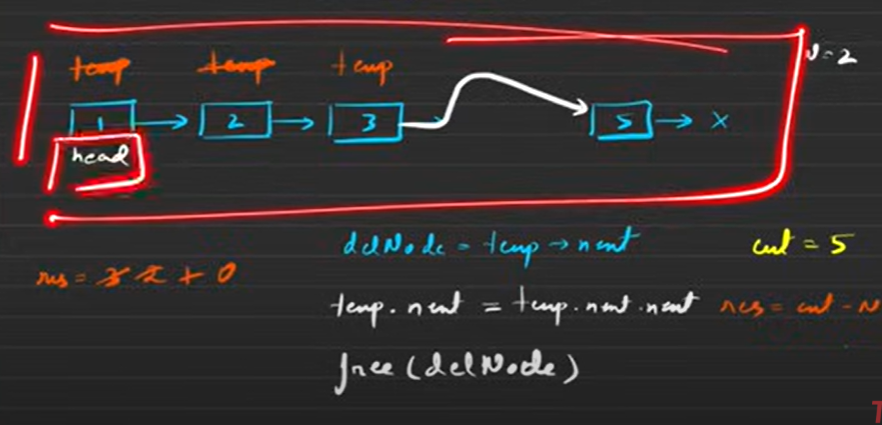 temp temp temp N=2
1 → 2 → 3 → 5 → x
head
delNode = temp → next cnt = 5
res = 3 2 1 0
temp.next = temp.next.next res = cnt - N
free(delNode)